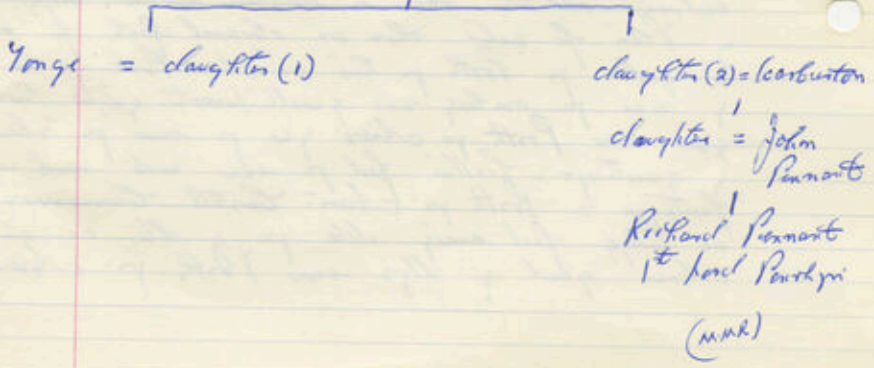 Yonge = daughter (1)
daughter (2) = Warburton
daughter = John
Pennant
Richard Pennant
1st Lord Penrhyn
(MMR)